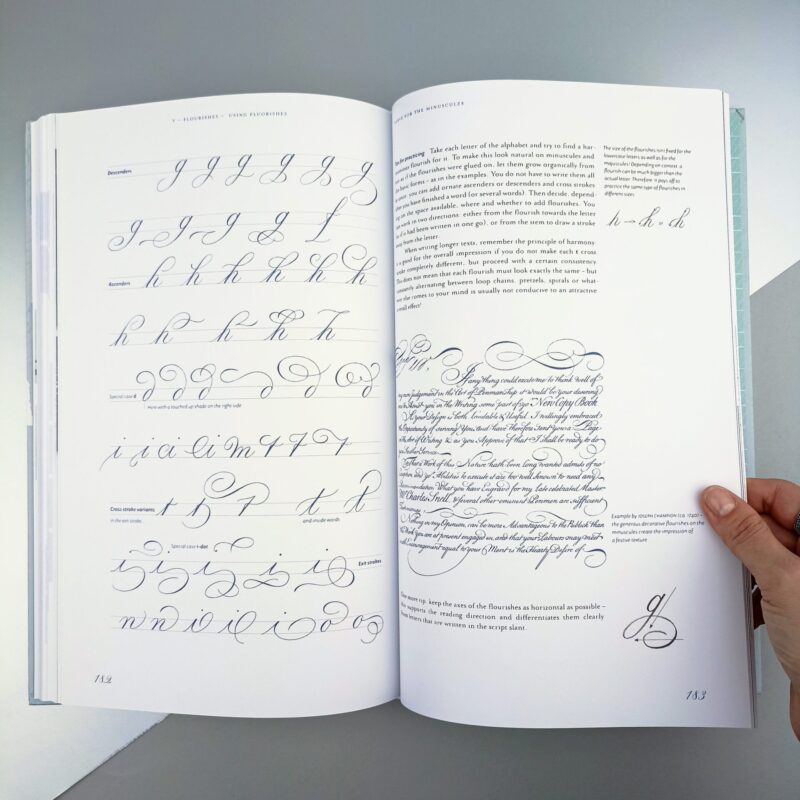 V – FLOURISHES – USING FLUORISHES
Descenders
g g g g g g
g g g g f
Ascenders
h h h h h h
h h h h h
Special case d
Here with a touched up shade on the right side
Cross stroke variants
in the exit stroke.
and inside words
Special case i-dot
Exit strokes
n n i i i o o
182
FOR THE MINUSCULES
for practicing Take each letter of the alphabet and try to find a har-
monious flourish for it. To make this look natural on minuscules and
as if the flourishes were glued on, let them grow organically from
basic forms – as in the examples. You do not have to write them all
once: you can add ornate ascenders or descenders and cross strokes
after you have finished a word (or several words). Then decide, depend-
ing on the space available, where and whether to add flourishes. You
can work in two directions: either from the flourish towards the letter
(as if it had been written in one go), or from the stem to draw a stroke
away from the letter.
When writing longer texts, remember the principle of harmony:
is good for the overall impression if you do not make each t cross
stroke completely different, but proceed with a certain consistency
This does not mean that each flourish must look exactly the same – but
constantly alternating between loop chains, pretzels, spirals or what-
ever else comes to your mind is usually not conducive to an attractive
overall effect!
The size of the flourishes isn't fixed for the
lowercase letters, as well as for the
majuscules! Depending on context, a
flourish can be much bigger than the
actual letter. Therefore, it pays off to
practice the same type of flourishes in
different sizes.
h → h o ch
If any thing could excite me to think well of
my own judgement in the Art of Penmanship, it would be your desiring
me to Assist you in the Writing some part of yo. New Copy Book
Your Design is both Laudable & Useful. I willingly embraced
the Opportunity of serving You, and have therefore sent you a Page
in the Art of Writing & as you Approve of that I shall be ready to do
you further Service.
That a Work of this Nature hath been long wanted admits of no
and yo. Abilities to execute it are too well known to need any
What you have Engraved for my Late celebrated Master
Mr. Charles Snell, & several other eminent Penmen are sufficient
Nothing in my Opinion, can be more Advantageous to the Publick than
the Work you are at present engaged in, and that your Labours may meet
with Encouragement equal to your Merit is the Hearty Desire of
Example by JOSEPH CHAMPION
the generous decorative flourishes on the
minuscules create the impression of
a festive texture
One more tip: keep the axes of the flourishes as horizontal as possible –
this supports the reading direction and differentiates them clearly
from letters that are written in the script slant.
g
183